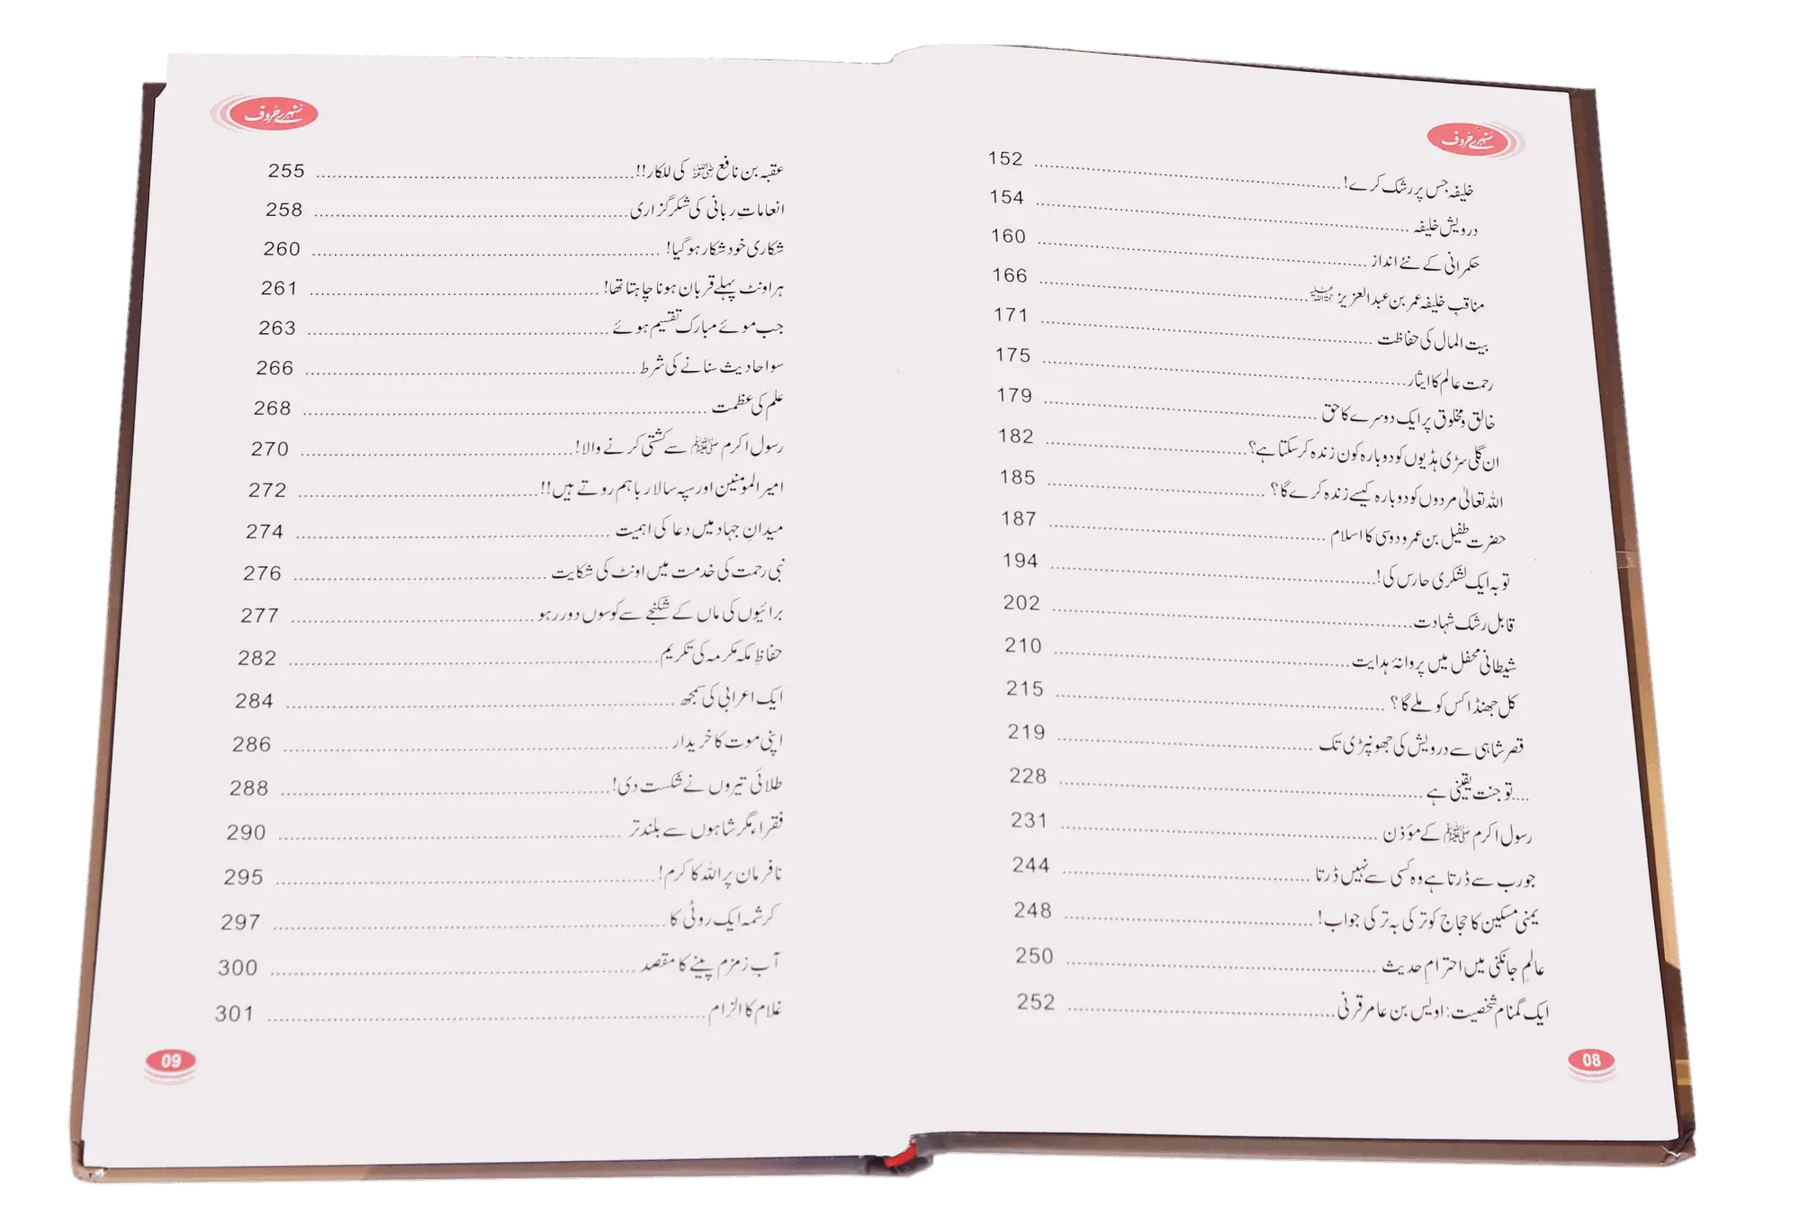 سنہرے حروف
خلیفہ جس پر رشک کرے! 152
درویش خلیفہ 154
حکمرانی کے نئے انداز 160
مناقبِ خلیفہ عمر بن عبدالعزیز رحمہ اللہ 166
بیت المال کی حفاظت 171
رحمت عالم کا ایثار 175
خالق و مخلوق پر ایک دوسرے کا حق 179
ان گلی سڑی ہڈیوں کو دوبارہ کون زندہ کر سکتا ہے؟ 182
اللہ تعالیٰ مردوں کو دوبارہ کیسے زندہ کرے گا؟ 185
حضرت طفیل بن عمرو دوسی کا اسلام 187
توبہ ایک لشکری حارس کی! 194
قابل رشک شہادت 202
شیطانی محفل میں پروانۂ ہدایت 210
کل جھنڈا کس کو ملے گا؟ 215
قصر شاہی سے درویش کی جھونپڑی تک 219
....تو جنت یقینی ہے 228
رسول اکرم ﷺ کے مؤذن 231
جو رب سے ڈرتا ہے وہ کسی سے نہیں ڈرتا 244
یمنی مسکین کا حجاج کو ترکی بہ ترکی جواب! 248
عالمِ جانکنی میں احترامِ حدیث 250
ایک گمنام شخصیت: اویس بن عامر قرنی 252
08
سنہرے حروف
عقبہ بن نافع رضی اللہ عنہ کی للکار!! 255
انعاماتِ ربانی کی شکر گزاری 258
شکاری خود شکار ہو گیا! 260
ہر اونٹ پہلے قربان ہونا چاہتا تھا! 261
جب موئے مبارک تقسیم ہوئے 263
سو احادیث سنانے کی شرط 266
علم کی عظمت 268
رسول اکرم ﷺ سے کشتی کرنے والا! 270
امیر المومنین اور سپہ سالار باہم روتے ہیں!! 272
میدانِ جہاد میں دعا کی اہمیت 274
نبی رحمت کی خدمت میں اونٹ کی شکایت 276
برائیوں کی ماں کے شکنجے سے کوسوں دور رہو 277
حفاظِ مکہ مکرمہ کی تکریم 282
ایک اعرابی کی سمجھ 284
اپنی موت کا خریدار 286
طلائی تیروں نے شکست دی! 288
فقراء مگر شاہوں سے بلند تر 290
نافرمان پر اللہ کا کرم! 295
کرشمہ ایک روٹی کا 297
آب زمزم پینے کا مقصد 300
غلام کا الزام 301
09